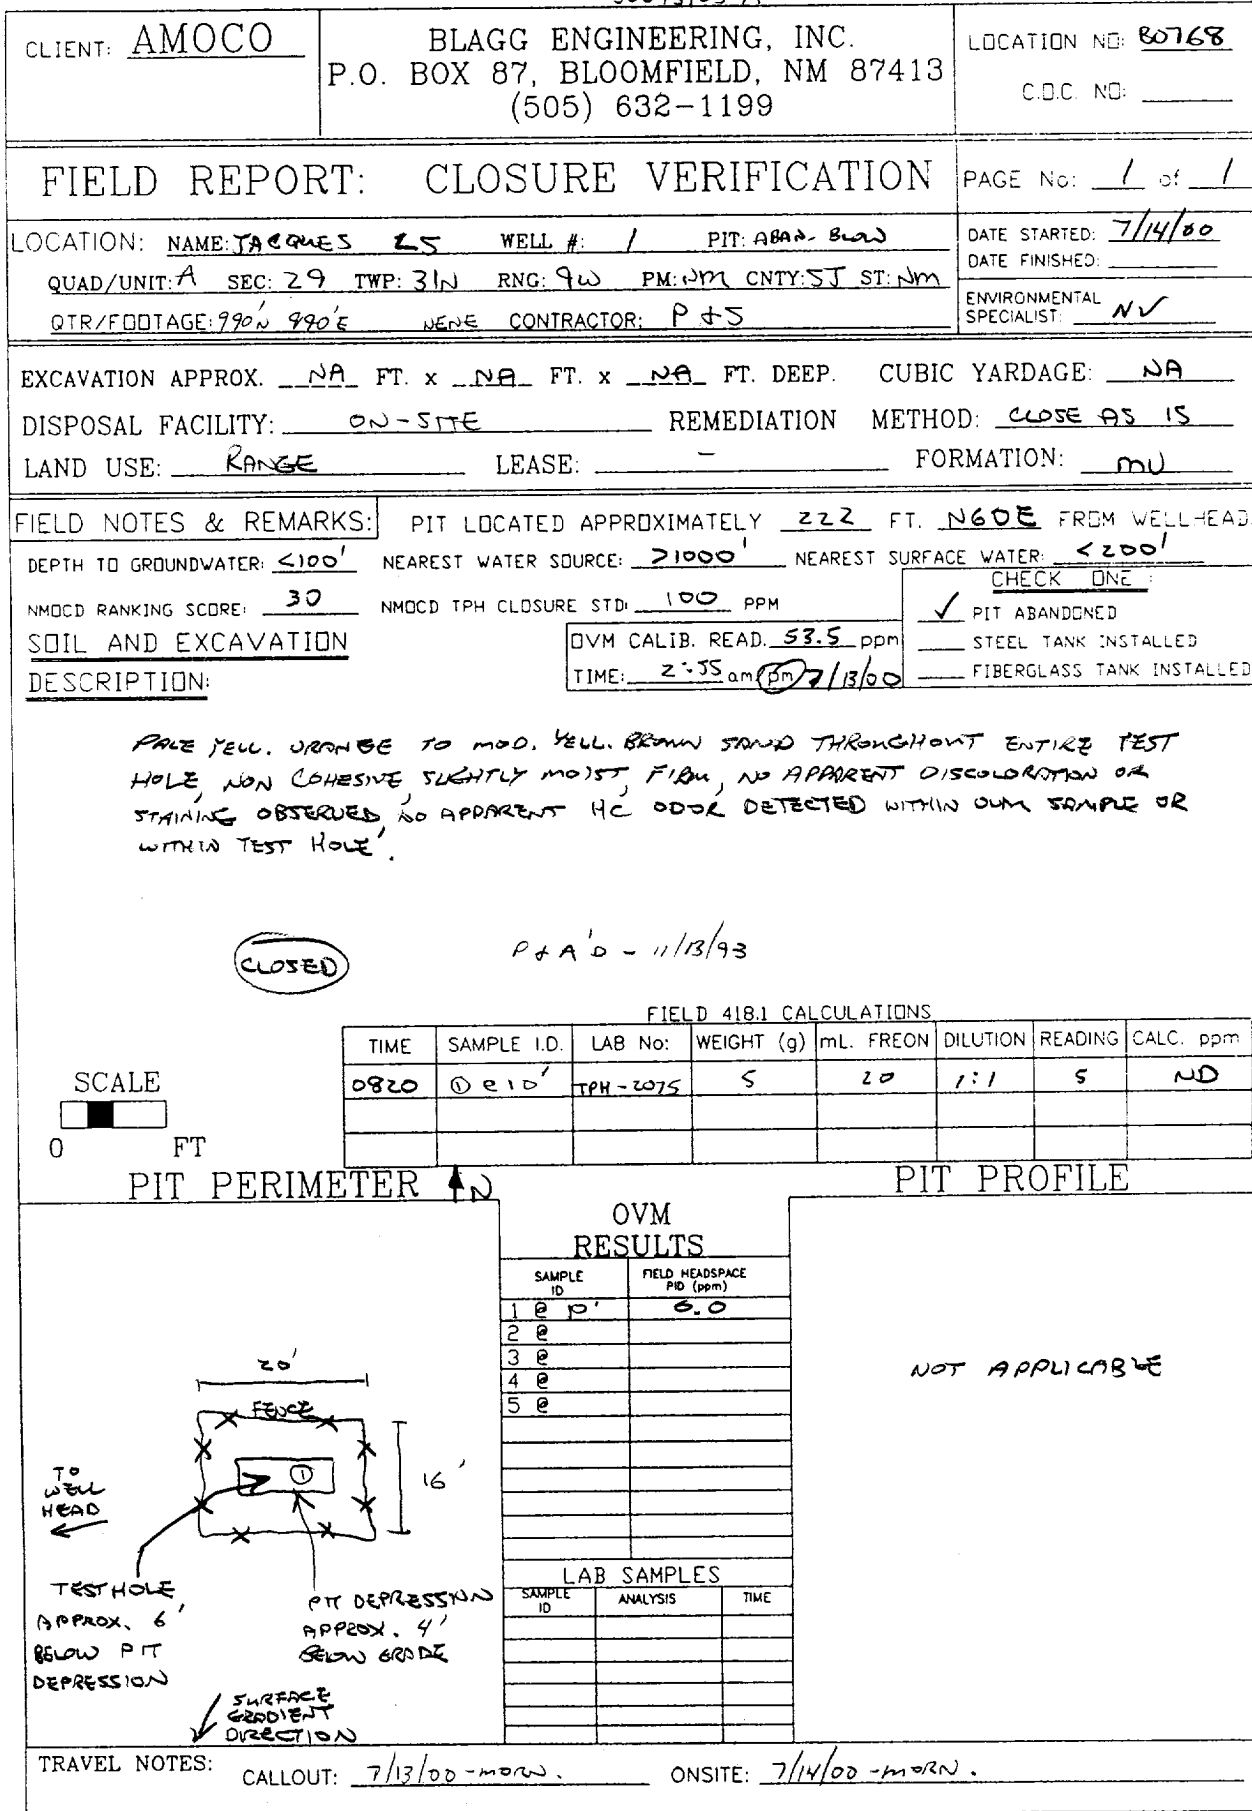 CLIENT: AMOCO
BLAGG ENGINEERING, INC.
P.O. BOX 87, BLOOMFIELD, NM 87413
(505) 632-1199
LOCATION NO: B0768
C.O.C. NO:
FIELD REPORT: CLOSURE VERIFICATION
PAGE No: 1 of 1
LOCATION: NAME: JACQUES LS WELL #: 1 PIT: ABAN. BLOW
QUAD/UNIT: A SEC: 29 TWP: 31N RNG: 9W PM: NM CNTY: SJ ST: NM
QTR/FOOTAGE: 990'N 990'E NENE CONTRACTOR: P & S
DATE STARTED: 7/14/00
DATE FINISHED:
ENVIRONMENTAL
SPECIALIST: NV
EXCAVATION APPROX. NA FT. x NA FT. x NA FT. DEEP. CUBIC YARDAGE: NA
DISPOSAL FACILITY: ON-SITE REMEDIATION METHOD: CLOSE AS IS
LAND USE: RANGE LEASE: - FORMATION: MV
FIELD NOTES & REMARKS: PIT LOCATED APPROXIMATELY 222 FT. N60E FROM WELLHEAD.
DEPTH TO GROUNDWATER: <100' NEAREST WATER SOURCE: >1000' NEAREST SURFACE WATER: <200'
NMOCD RANKING SCORE: 30 NMOCD TPH CLOSURE STD: 100 PPM
CHECK ONE :
✓ PIT ABANDONED
STEEL TANK INSTALLED
FIBERGLASS TANK INSTALLED
SOIL AND EXCAVATION
DESCRIPTION:
OVM CALIB. READ. 53.5 ppm
TIME: 2:55 am pm 7/13/00
PALE YELL. ORANGE TO MOD. YELL. BROWN SAND THROUGHOUT ENTIRE TEST
HOLE, NON COHESIVE, SLIGHTLY MOIST, FIRM, NO APPARENT DISCOLORATION OR
STAINING OBSERVED, NO APPARENT HC ODOR DETECTED WITHIN OVM SAMPLE OR
WITHIN TEST HOLE.
CLOSED
P & A'D - 11/13/93
FIELD 418.1 CALCULATIONS
TIME SAMPLE I.D. LAB No: WEIGHT (g) mL. FREON DILUTION READING CALC. ppm
0820 ① @ 10' TPH-2075 5 20 1:1 5 ND
SCALE
0 FT
PIT PERIMETER N
PIT PROFILE
OVM
RESULTS
SAMPLE ID FIELD HEADSPACE PID (ppm)
1 @ 10' 0.0
2 @
3 @
4 @
5 @
20'
FENCE
①
16'
TO
WELL
HEAD
TEST HOLE
APPROX. 6'
BELOW PIT
DEPRESSION
PIT DEPRESSION
APPROX. 4'
BELOW GRADE
SURFACE
GRADIENT
DIRECTION
NOT APPLICABLE
LAB SAMPLES
SAMPLE ID ANALYSIS TIME
TRAVEL NOTES: CALLOUT: 7/13/00 - MORN. ONSITE: 7/14/00 - MORN.